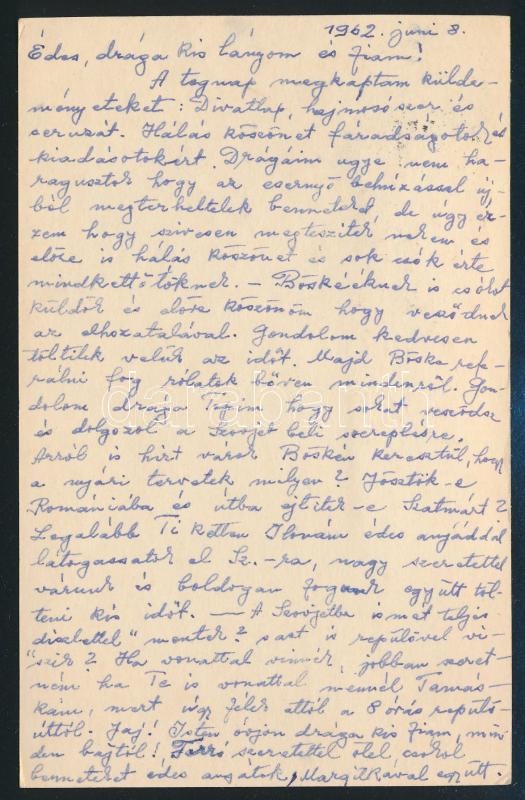 1962. juni 8.
Édes, drága kis lányom és fiam!
A tegnap megkaptam külde-
ményeteket: Divatlap, hajmosószer és
ceruzát. Hálás köszönet fáradságotok és
kiadásotokért. Drágáim ugye nem ha-
ragusztok hogy az esernyő behúzással új-
ból megterheltelek benneteket, de úgy ér-
zem hogy szivesen megteszitek nekem és
előre is hálás köszönet és sok csók érte
mindkettőtöknek. — Böskééknek is csókot
küldök és előre köszönöm hogy vesződnek
az elhozatalával. Gondolom kedvesen
töltitek velük az időt. Majd Böske refe-
rálni fog rólatok bőven mindenről. Gon-
dolom drága hogy sokat vesződsz
és dolgozol a Szovjet beli szereplésre.
Arról is hirt várok Böskén keresztül, hogy
a nyári tervetek milyen? Jösztök-e
Romániába és útba ejtitek-e Szatmárt?
Legalább Ti ketten édes anyáddal
látogassatok el Sz.-ra, nagy szeretettel
várunk és boldogan fogunk együtt töl-
teni kis időt. — A Szovjetba ismét teljes
diszlettel" mentek? s azt is repülővel vi-
"szik? Ha vonattal vinnék, jobban szeret-
ném ha Te is vonattal mennél Tamás-
kám, mert úgy félek attól a 8 órás repülő-
úttól. Jaj! Isten óvjon drága kis fiam, min-
den bajtól! Forró szeretettel ölel csókol
benneteket édes anyátok, Margitkával együtt.
darabanth